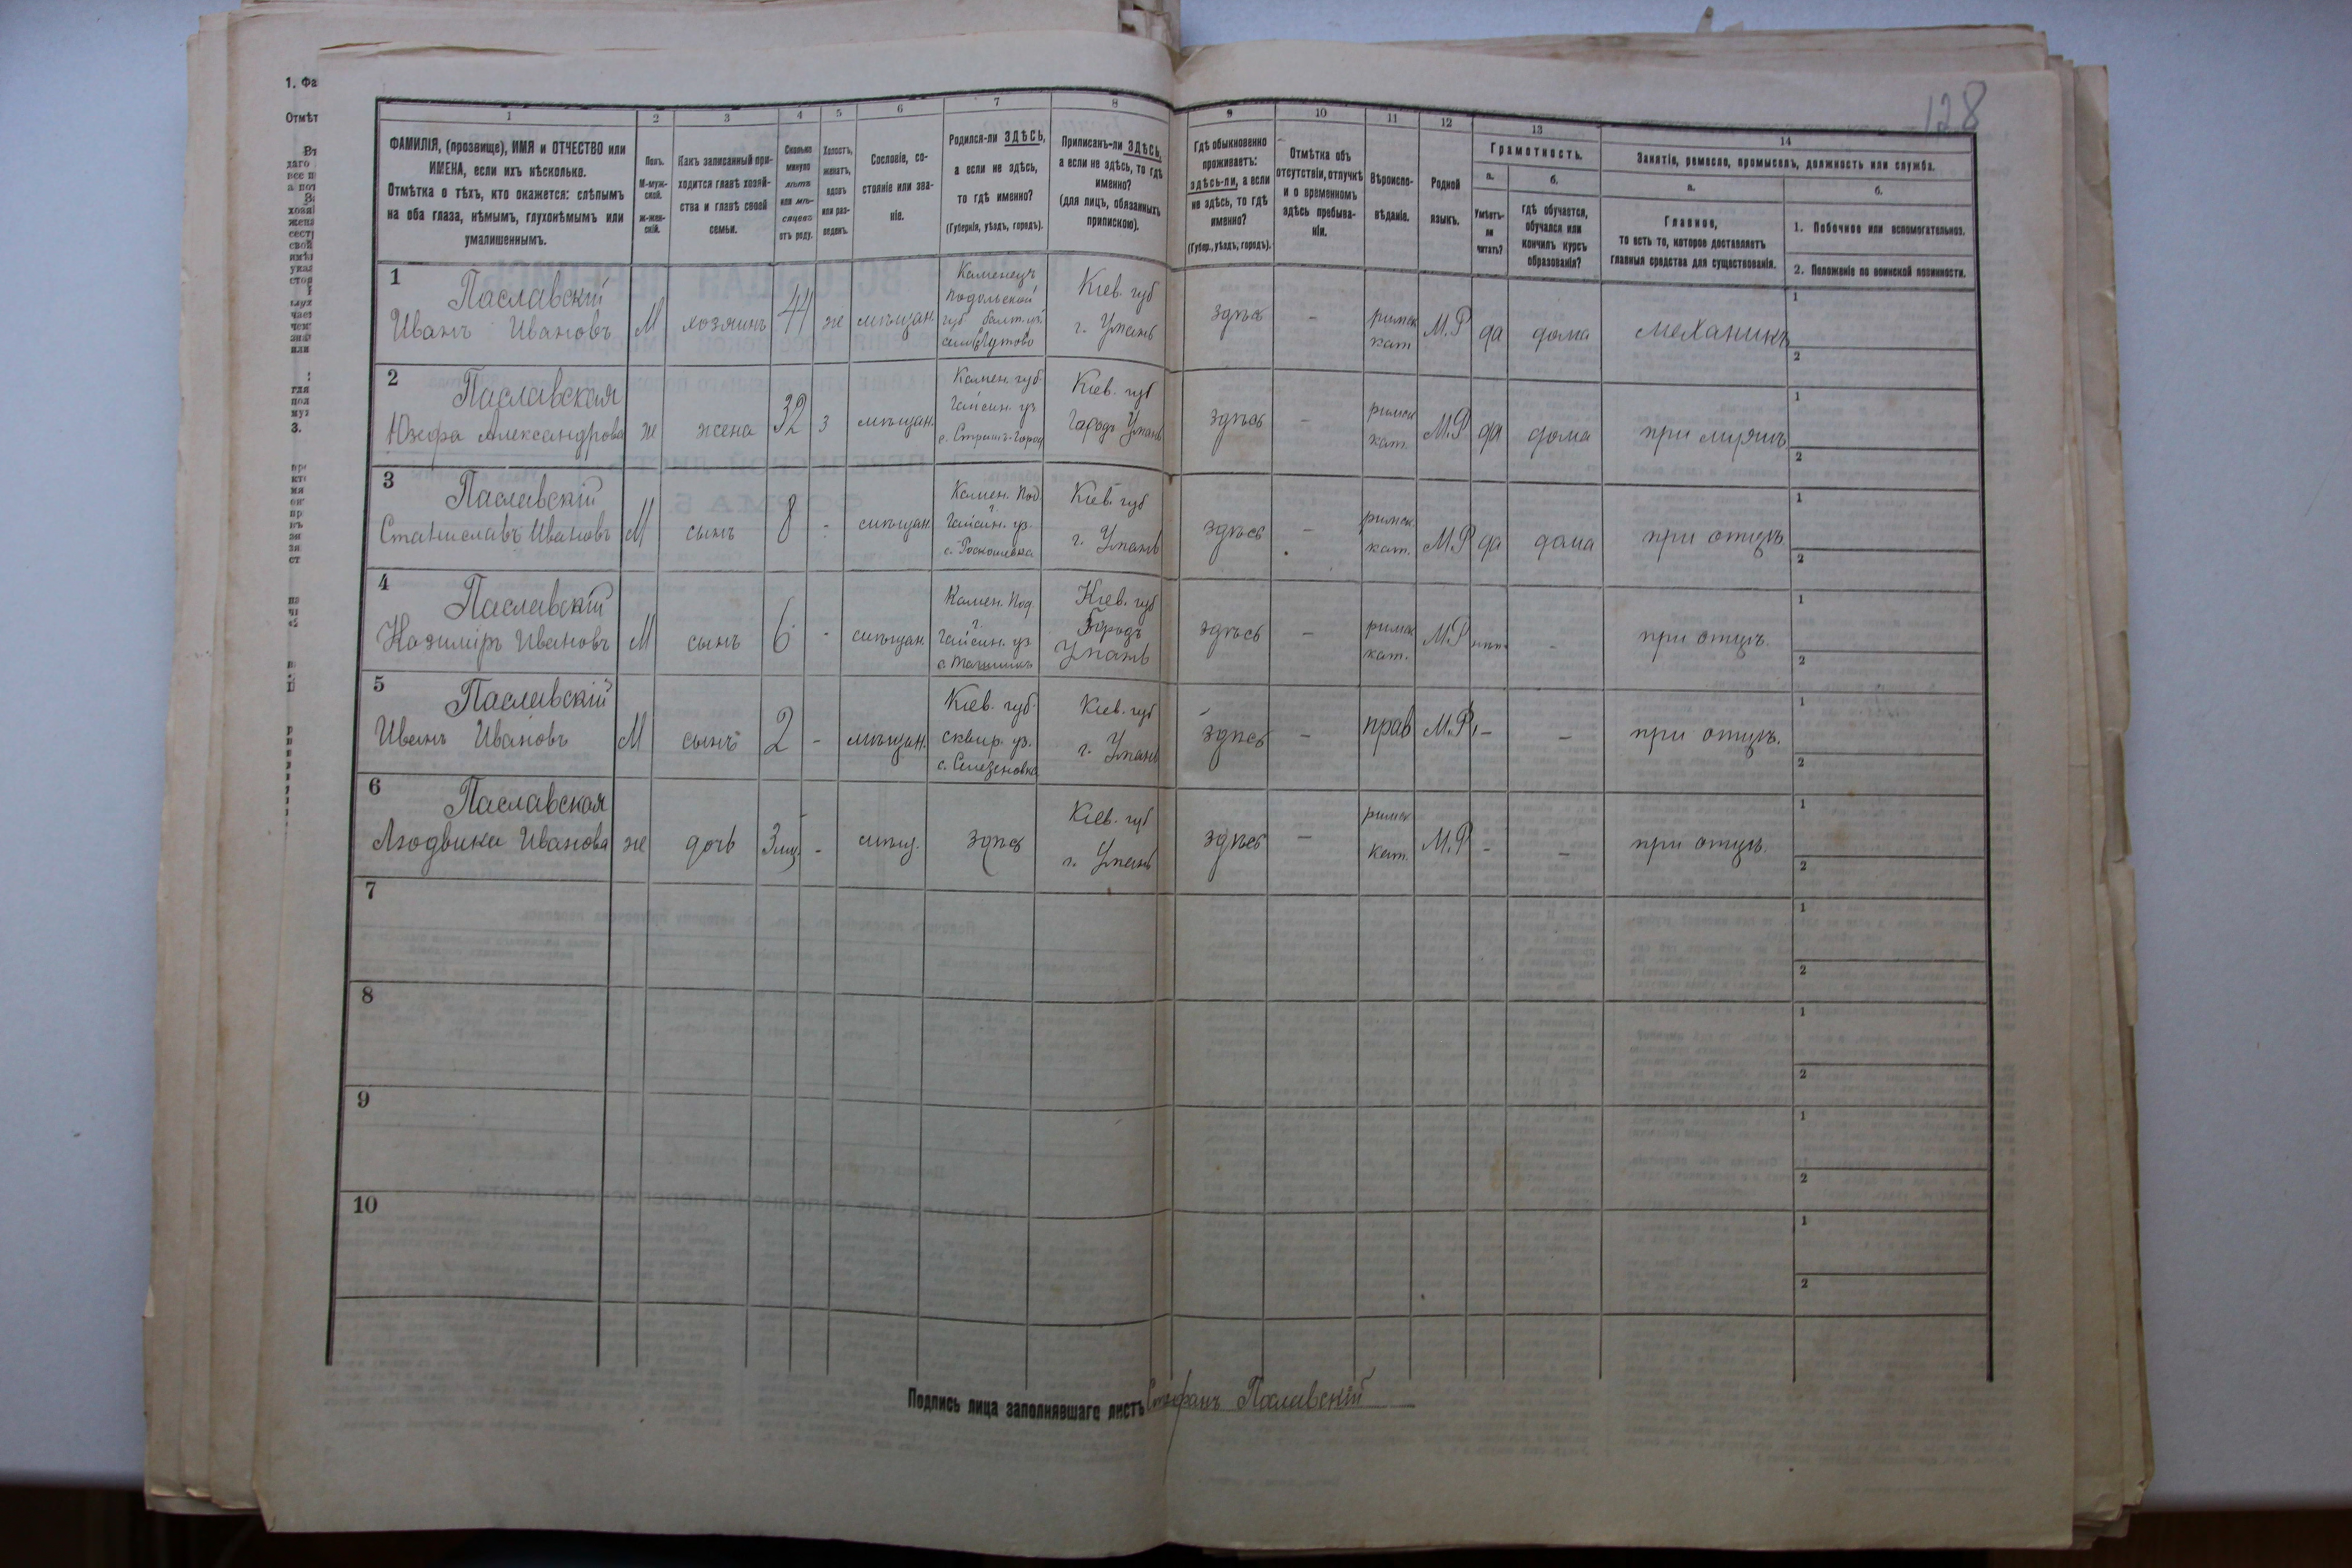 128
1. Фа
Отмѣт
1 2 3 4 5 6 7 8 9 10 11 12 13 14
ФАМИЛІЯ, (прозвище), ИМЯ и ОТЧЕСТВО или
ИМЕНА, если ихъ нѣсколько.
Отмѣтка о тѣхъ, кто окажется: слѣпымъ
на оба глаза, нѣмымъ, глухонѣмымъ или
умалишеннымъ.
Полъ.
М-муж-
ской.
ж-жен-
скій.
Какъ записанный при-
ходится главѣ хозяй-
ства и главѣ своей
семьи.
Сколько
минуло
лѣтъ
или мѣ-
сяцевъ
отъ роду.
Холостъ,
женатъ,
вдовъ
или раз-
веденъ.
Сословіе, со-
стояніе или зва-
ніе.
Родился-ли ЗДѢСЬ,
а если не здѣсь,
то гдѣ именно?
(Губернія, уѣздъ, городъ).
Приписанъ-ли ЗДѢСЬ,
а если не здѣсь, то гдѣ
именно?
(для лицъ, обязанныхъ
припискою).
Гдѣ обыкновенно
проживаетъ:
здѣсь-ли, а если
не здѣсь, то гдѣ
именно?
(Губер., уѣздъ, городъ).
Отмѣтка объ
отсутствіи, отлучкѣ
и о временномъ
здѣсь пребыва-
ніи.
Вѣроиспо-
вѣданіе.
Родной
языкъ.
Грамотность.
а.
Умѣетъ-
ли
читать?
б.
гдѣ обучается,
обучался или
кончилъ курсъ
образованія?
Занятіе, ремесло, промыселъ, должность или служба.
а.
Главное,
то есть то, которое доставляетъ
главныя средства для существованія.
б.
1. Побочное или вспомогательное.
2. Положеніе по воинской повинности.
1
Паславскій
Иванъ Ивановъ
М
хозяинъ
44
же
мѣщан.
Каменецъ
Подольской
губ балт. уѣ.
Кіев. губ
г. Умань
здѣсь
-
римск
кат
М.Р
да
дома
механикъ
1
2
2
Паславская
Юзефа Александрова
же
жена
32
з
мѣщан.
Камен. губ
Гайсин. уз
Кіев. губ
Городъ Умань
здѣсь
-
римск
кат.
М.Р
да
дома
при мужѣ
1
2
3
Паславскій
Станиславъ Ивановъ
М
сынъ
8
-
мѣщан.
Камен. Под
Гайсин. уз.
Кіев. губ
г. Умань
здѣсь
-
римск.
кат.
М.Р
да
дома
при отцѣ
1
2
4
Паславскій
Казиміръ Ивановъ
М
сынъ
6
-
мѣщан.
Камен. Под.
Гайсин. уз
Кіев. губ
Городъ
Умань
здѣсь
-
римск
кат.
М.Р
нѣт
-
при отцѣ.
1
2
5
Паславскій
Иванъ Ивановъ
М
сынъ
2
-
мѣщан.
Кіев. губ.
сквир. уз.
с. Селезеновка
Кіев. губ
г. Умань
здѣсь
-
прав
М.Р.
-
-
при отцѣ.
1
2
6
Паславская
Людвика Иванова
же
дочь
3 мц.
-
мѣщ.
здѣсь
Кіев. губ
г. Умань
здѣсь
-
римск
кат.
М.Р
-
-
при отцѣ.
1
2
7
1
2
8
1
2
9
1
2
10
1
2
Подпись лица заполнявшаго листъ Стефанъ Паславскій